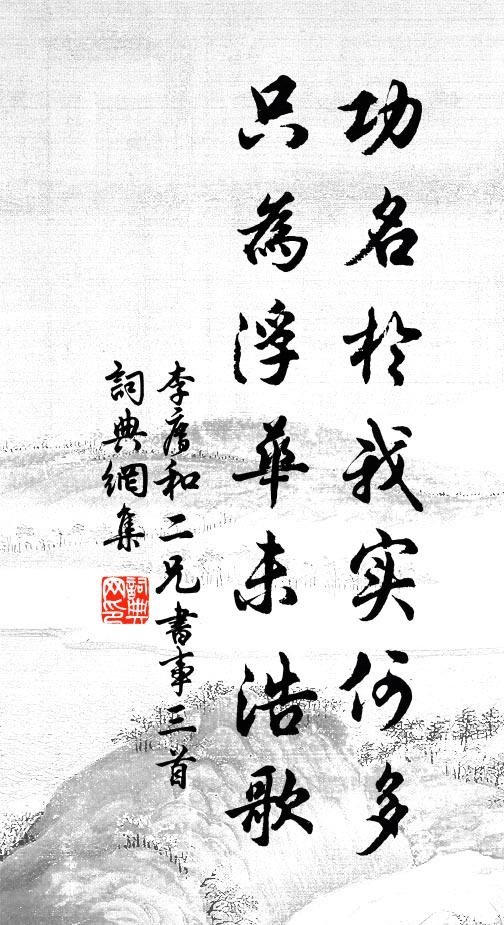 功名於我实何多
只為浮華未浩歌
李廌和二兄書事三首
詞典網集
詞典网印